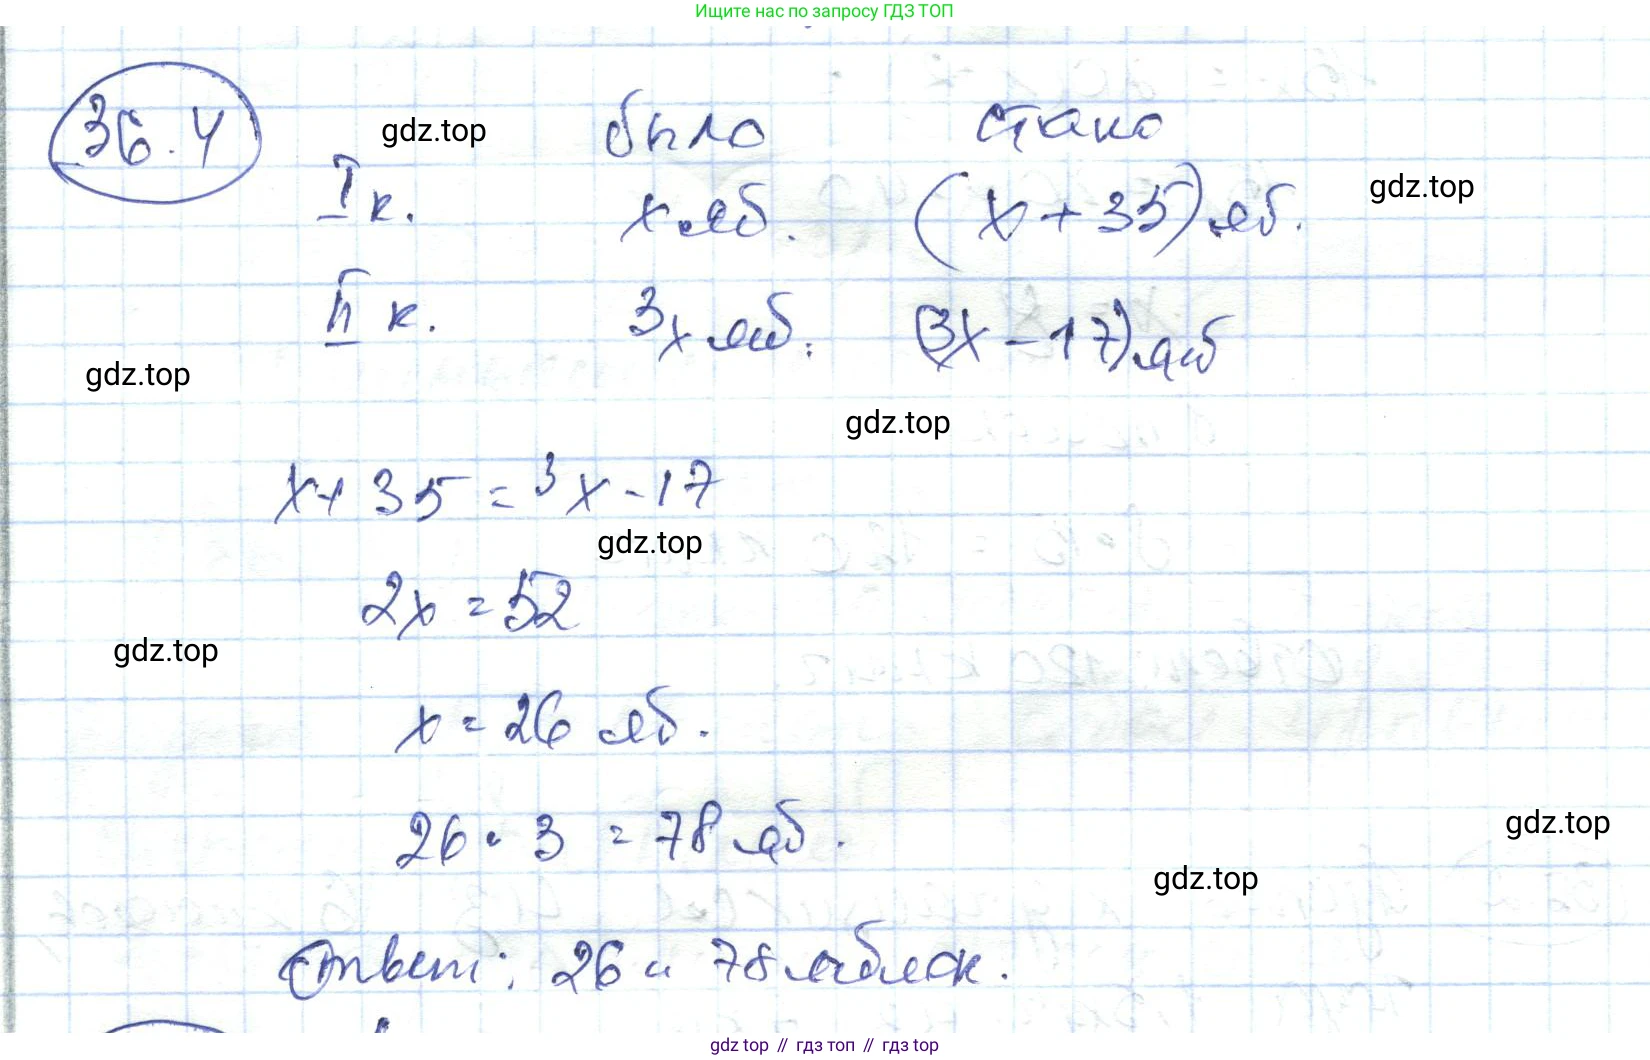 Ищите нас по запросу ГДЗ ТОП
36.4 gdz.top было стало
I к. х яб. (х + 35) яб. gdz.top
II к. 3х яб. (3х - 17) яб
gdz.top
gdz.top
х + 35 = 3х - 17
gdz.top
2х = 52
gdz.top
х = 26 яб.
26 · 3 = 78 яб.
gdz.top
gdz.top
Ответ: 26 и 78 яблок.
gdz.top // гдз топ // гдз top